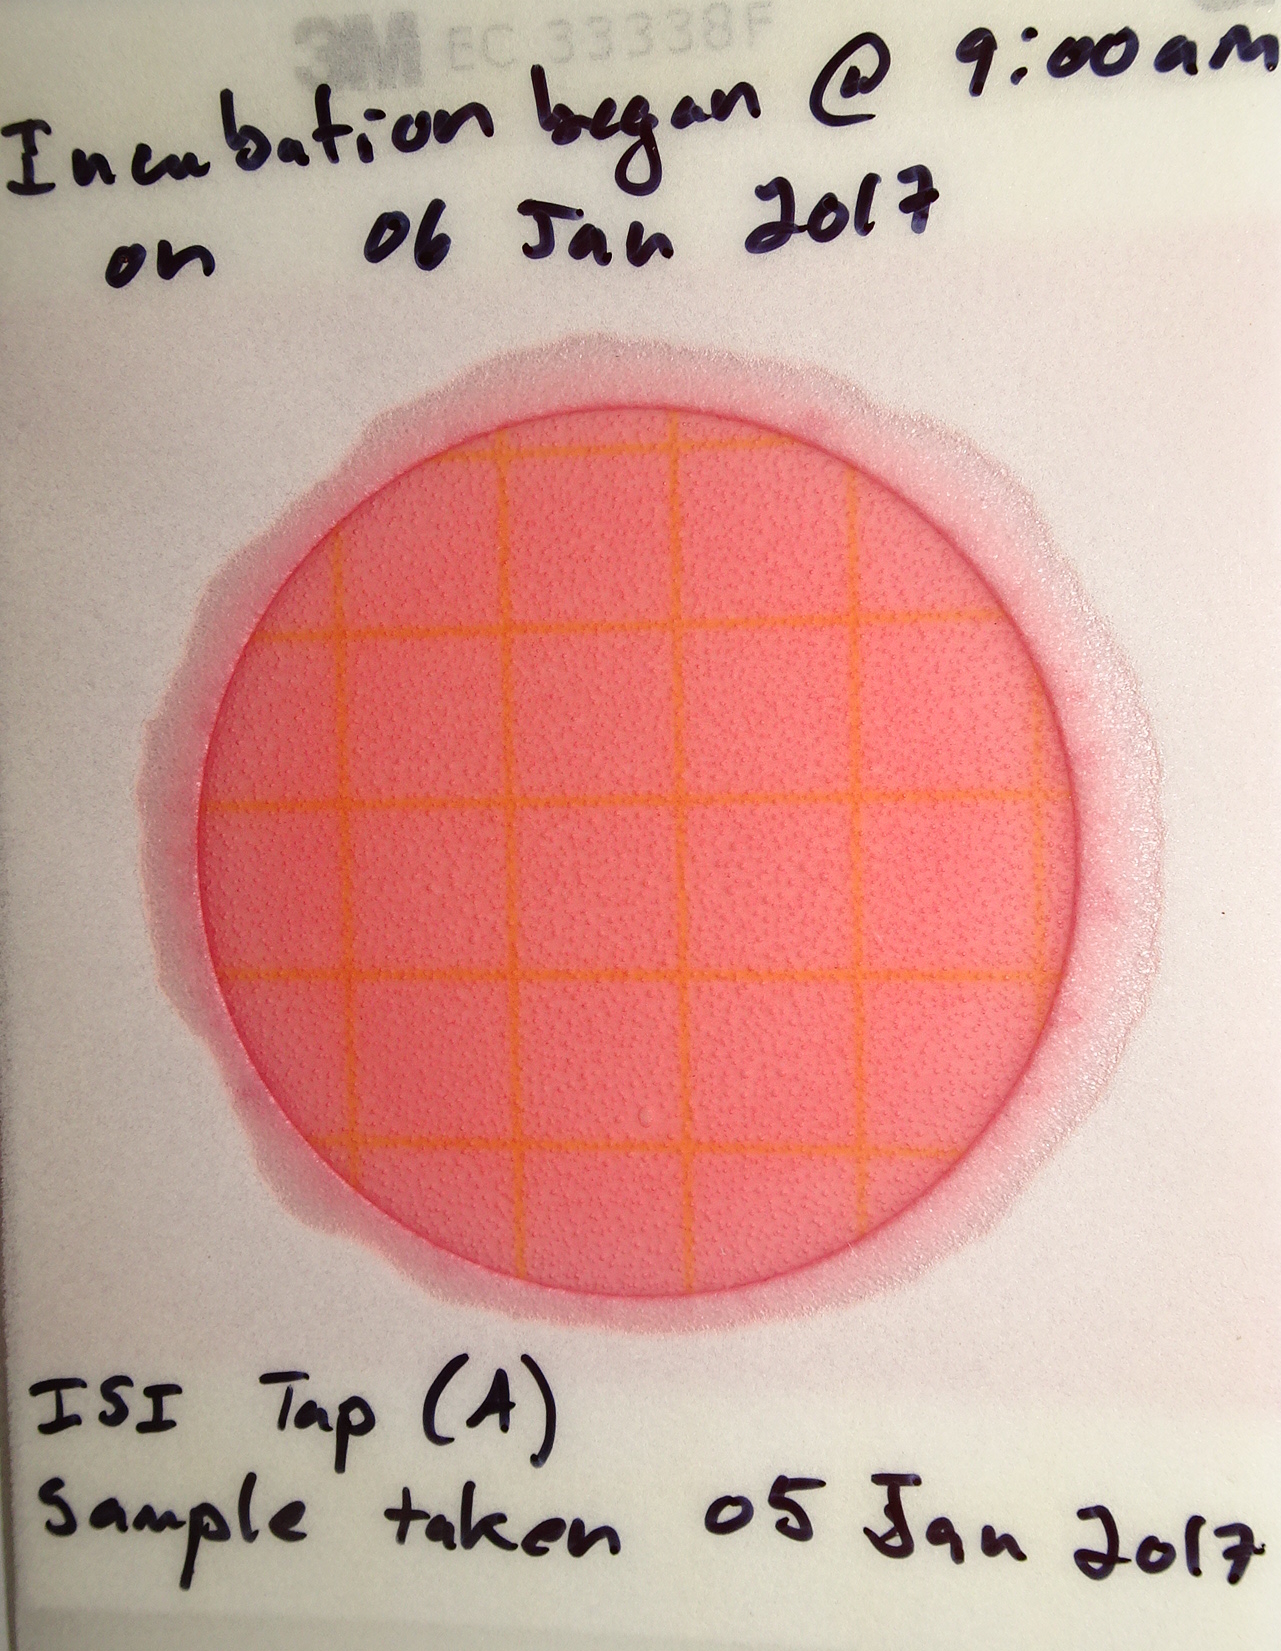 3M EC 33338F
Incubation began @ 9:00am
on 06 Jan 2017
ISI Tap (A)
Sample taken 05 Jan 2017